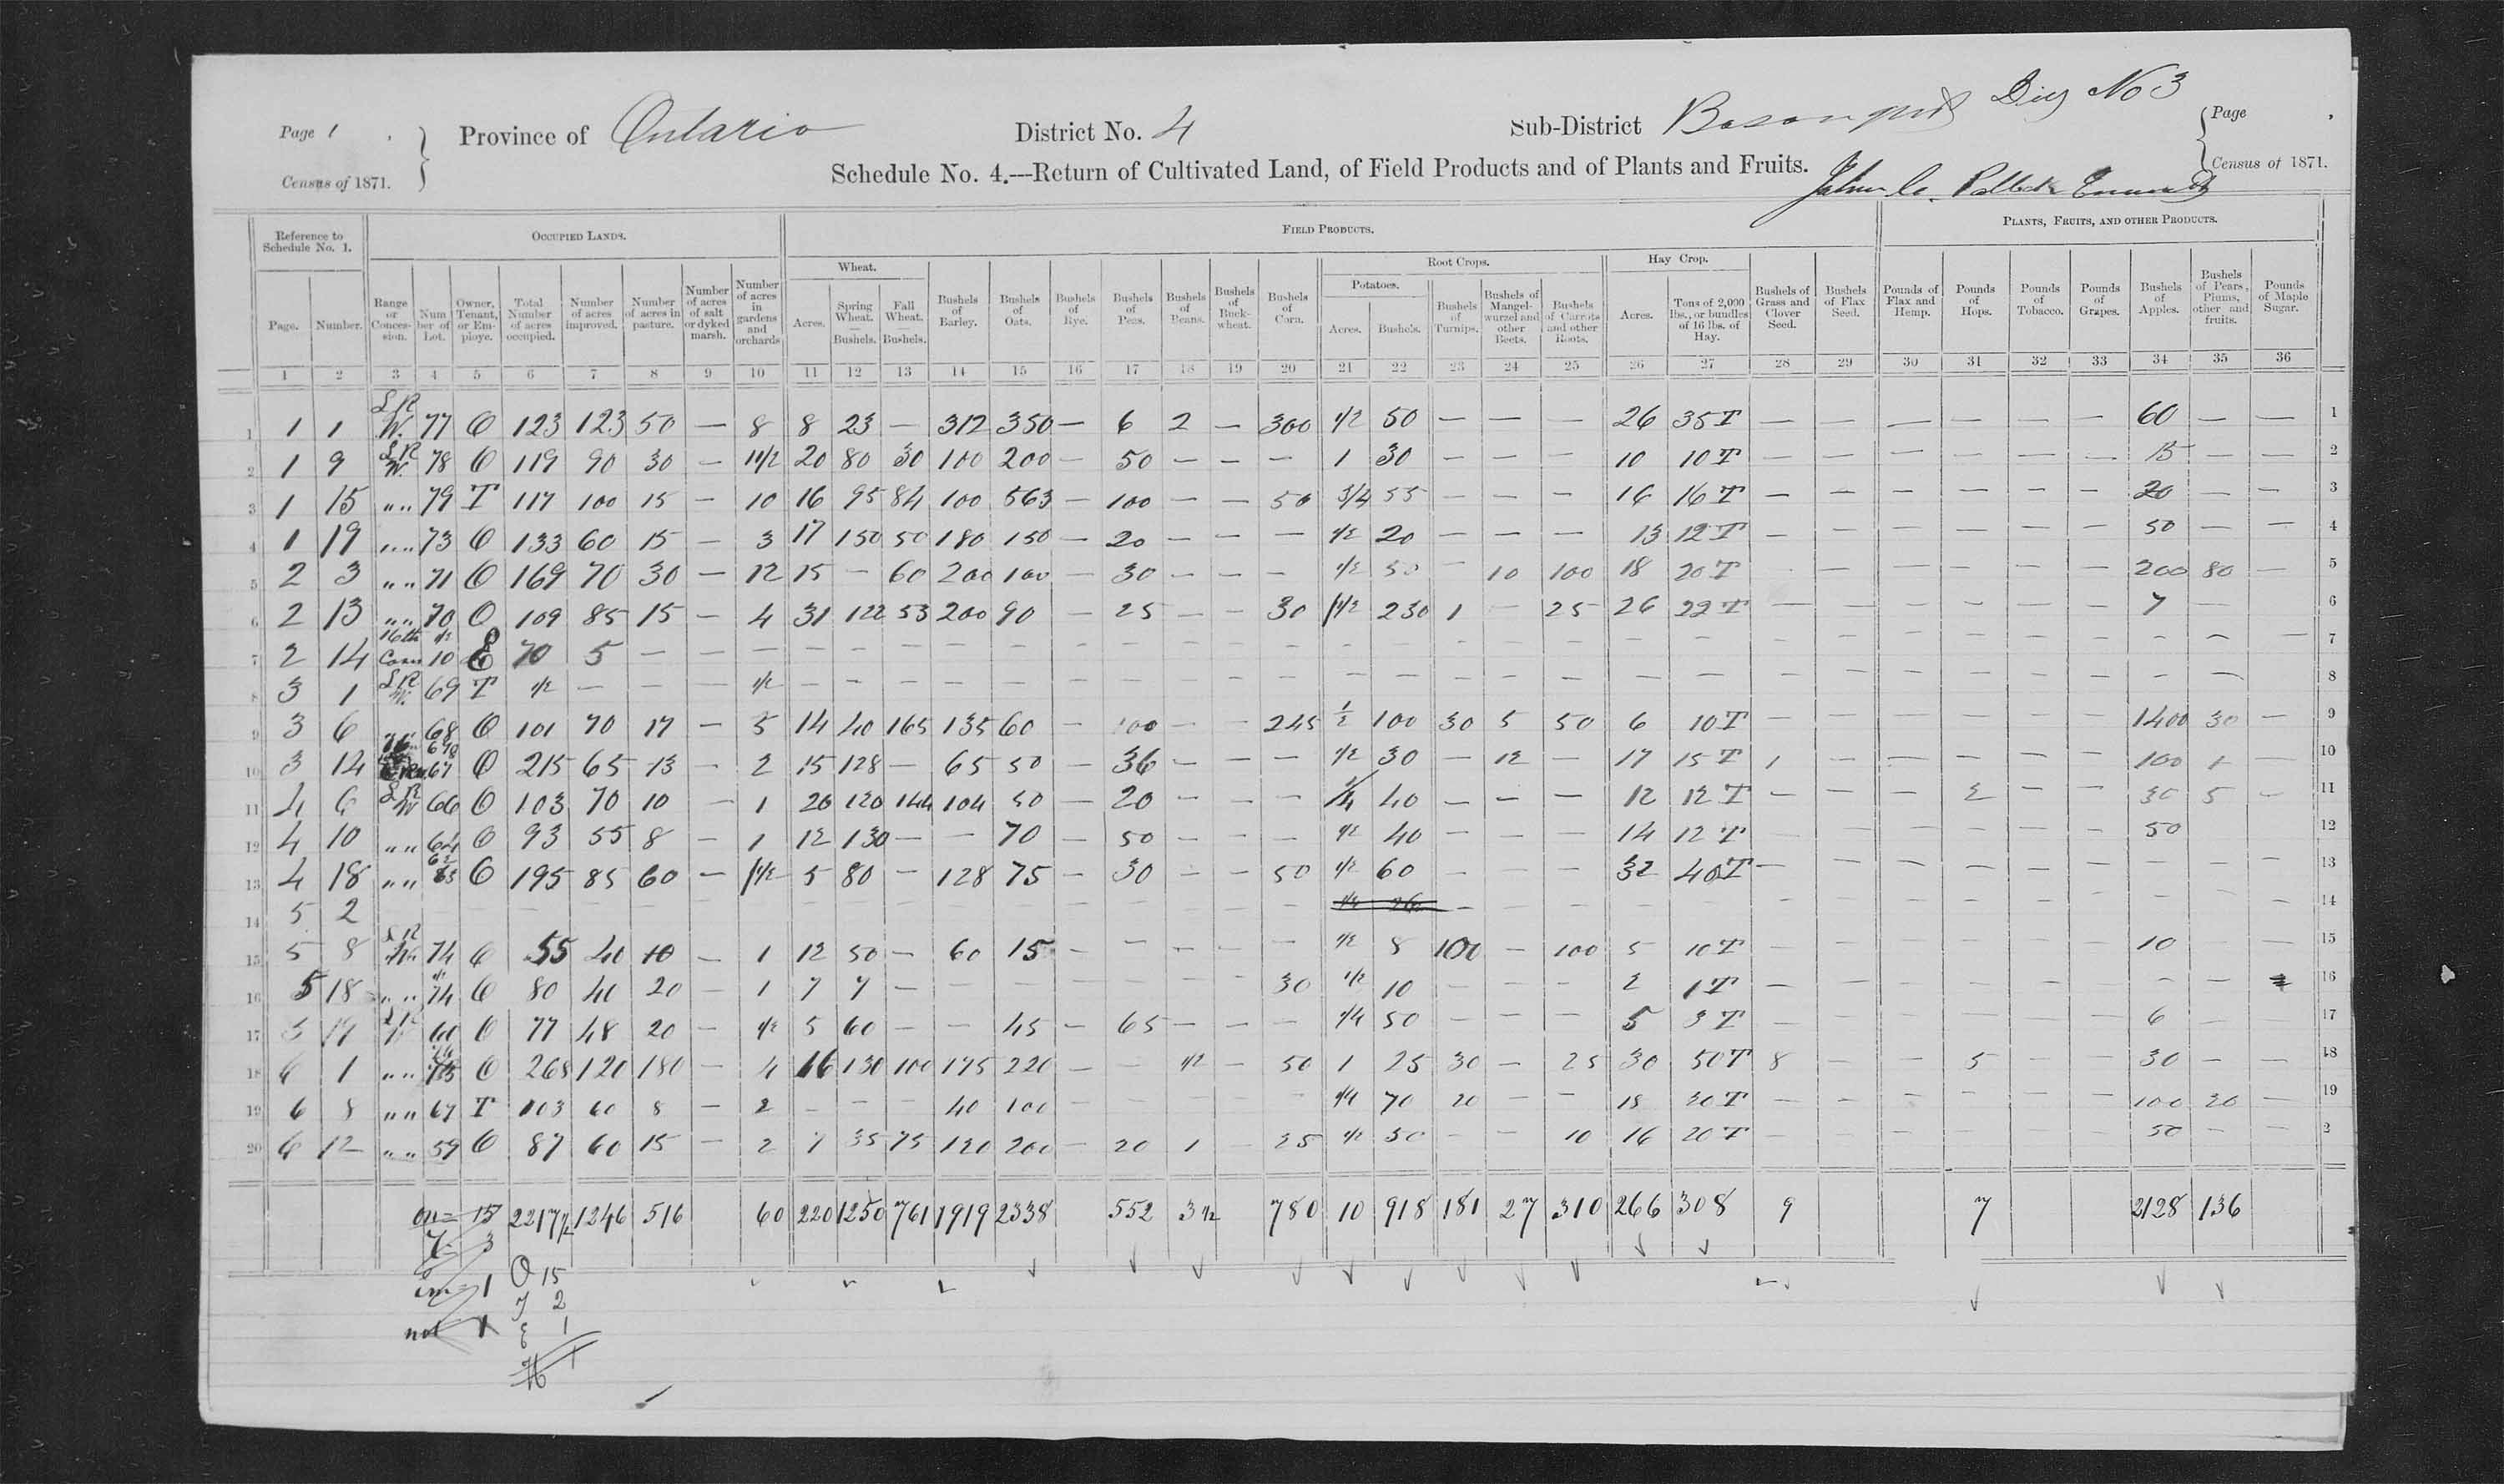 Page 1
Census of 1871.
Province of Ontario
District No. 4
Sub-District Bosanquet Div No 3
Page
Census of 1871.
Schedule No. 4.---Return of Cultivated Land, of Field Products and of Plants and Fruits.
Reference to Schedule No. 1. OCCUPIED LANDS. FIELD PRODUCTS. PLANTS, FRUITS, AND OTHER PRODUCTS.
Wheat. Root Crops. Hay Crop.
Potatoes.
Page. Number. Range or Concession. Number of Lot. Owner, Tenant, or Employe. Total Number of acres occupied. Number of acres improved. Number of acres in pasture. Number of acres of salt or dyked marsh. Number of acres in gardens and orchards Acres. Spring Wheat. Bushels. Fall Wheat. Bushels. Bushels of Barley. Bushels of Oats. Bushels of Rye. Bushels of Peas. Bushels of Beans. Bushels of Buckwheat. Bushels of Corn. Acres. Bushels. Bushels of Turnips. Bushels of Mangel-wurzel and other Beets. Bushels of Carrots and other Roots. Acres. Tons of 2,000 lbs., or bundles of 16 lbs. of Hay. Bushels of Grass and Clover Seed. Bushels of Flax Seed. Pounds of Flax and Hemp. Pounds of Hops. Pounds of Tobacco. Pounds of Grapes. Bushels of Apples. Bushels of Pears, Plums, other and fruits. Pounds of Maple Sugar.
1 2 3 4 5 6 7 8 9 10 11 12 13 14 15 16 17 18 19 20 21 22 23 24 25 26 27 28 29 30 31 32 33 34 35 36
1 1 1 L R W. 77 O 123 123 50 — 8 8 23 — 312 350 — 6 2 — 300 1/2 50 — — — 26 35 T — — — — — — 60 — — 1
2 1 9 L R W. 78 O 119 90 30 — 1 1/2 20 80 30 100 200 — 50 — — — 1 30 — — — 10 10 T — — — — — — 15 — — 2
3 1 15 " " 79 T 117 100 15 — 10 16 95 84 100 563 — 100 — — 50 3/4 55 — — — 16 16 T — — — — — — 20 — — 3
4 1 19 " " 73 O 133 60 15 — 3 17 150 50 180 150 — 20 — — — 1/2 20 — — — 13 12 T — — — — — — 50 — — 4
5 2 3 " " 71 O 169 70 30 — 12 15 — 60 200 100 — 30 — — — 1/2 50 — 10 100 18 20 T — — — — — — 200 80 — 5
6 2 13 " " 70 O 109 85 15 — 4 31 122 53 200 90 — 25 — — 30 1 1/2 230 1 — 25 26 22 T — — — — — — 7 — 6
7 2 14 16th Con 1/2 10 E 70 5 — — — — — — — — — — — — — — — — — — — — — — — — — — — — — — 7
8 3 1 L R W. 69 T 1/2 — — — 1/2 — — — — — — — — — — — — — — — — — — — — — — — — — 8
9 3 6 " " 68 O 101 70 17 — 5 14 40 165 135 60 — 100 — — 245 1/2 100 30 5 50 6 10 T — — — — — — 1400 30 — 9
10 3 14 67 O 215 65 13 — 2 15 128 — 65 50 — 36 — — — 1/2 30 — 12 — 17 15 T 1 — — — — — 100 1 — 10
11 4 6 L R W 66 O 103 70 10 — 1 20 120 144 104 50 — 20 — — — 1/4 40 — — — 12 12 T — — — 2 — — 30 5 — 11
12 4 10 " " 64 O 93 55 8 — 1 12 130 — — 70 — 50 — — — 1/2 40 — — — 14 12 T — — — — — — 50 12
13 4 18 " " O 195 85 60 — 1 1/2 5 80 — 128 75 — 30 — — 50 1/2 60 — — — 32 40 T — — — — — — — — — 13
14 5 2 — — — — — — — — — — — — — — — — — — — — — — — — — — — — — — — 14
15 5 8 L R W. 74 O 55 40 10 — 1 12 50 — 60 15 — — — — — 1/2 8 100 — 100 5 10 T — — — — — — 10 — — 15
16 5 18 " " 74 O 80 40 20 — 1 7 7 — — — — — — — 30 1/2 10 — — — 2 1 T — — — — — — — — 16
17 5 19 L R W 60 O 77 48 20 — 1/2 5 60 — — 45 — 65 — — — 1/4 50 — — — 5 3 T — — — — — — 6 — — 17
18 6 1 " " O 268 120 180 — 4 16 130 100 175 220 — — 1/2 — 50 1 25 30 — 25 30 50 T 8 — — 5 — — 30 — — 18
19 6 8 " " 67 T 103 60 8 — 2 — — — 40 100 — — — — — 1/4 70 20 — — 15 20 T — — — — — — 100 20 — 19
20 6 12 " " 59 O 87 60 15 — 2 7 35 75 120 200 — 20 1 — 25 1/2 30 — — 10 16 20 T — — — — — — 50 — — 2
15 2217 1/2 1246 516 60 220 1250 761 1919 2338 552 3 1/2 780 10 918 181 27 310 266 308 9 7 2128 136
3
1 O 15
T 2
not 1 E 1